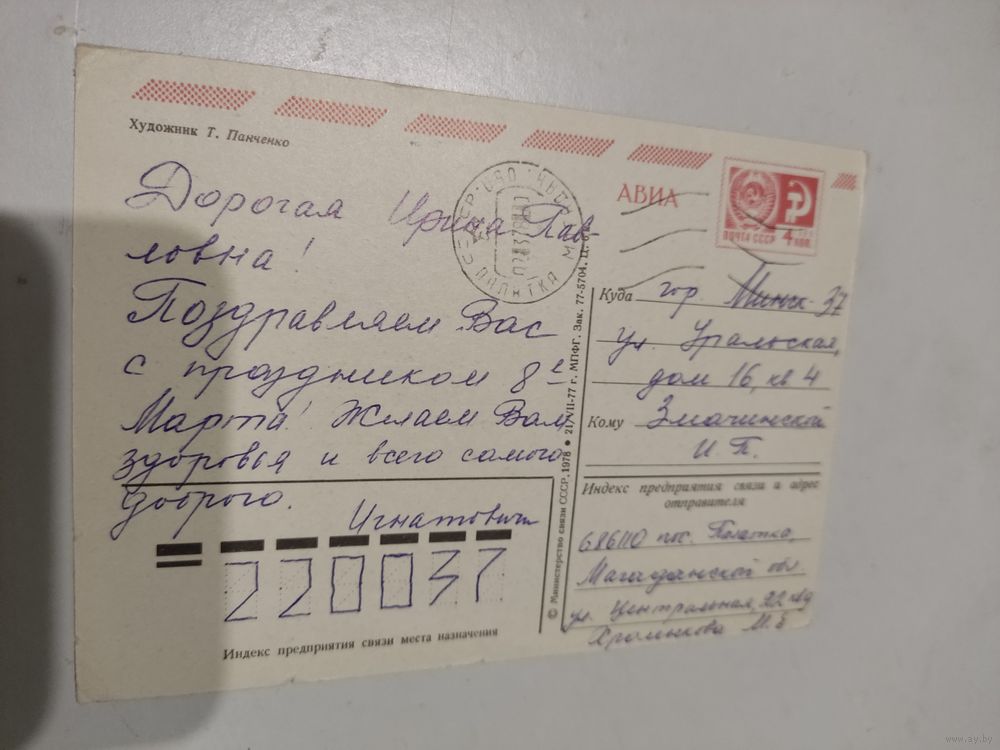 Художник Т. Панченко
АВИА
ПОЧТА СССР 4 КОП.
Дорогая Ирина Пав-
ловна!
Поздравляем Вас
с праздником 8е
Марта! Желаем Вам
здоровья и всего самого
доброго.
Игнатовичи
220037
Индекс предприятия связи места назначения
© Министерство связи СССР, 1978 • 21/VII-77 г. МПФГ. Зак. 77-5704. Ц. 6
СССР
ПАЛАТКА
Куда гор. Минск 37
ул. Уральская,
дом 16, кв 4
Кому Змачинской
И. П.
Индекс предприятия связи и адрес
отправителя
686110 пос. Палатка
Магаданской обл.
ул. Центральная, 22
М.
www.ay.by